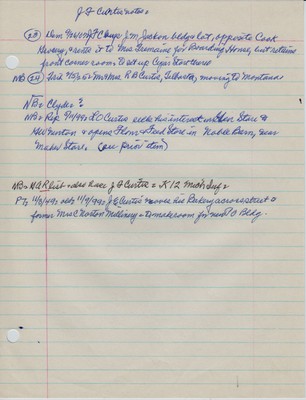 J F Curtis notes:
(23) Dem 9/4/05: J F C buys J.M. Jackson bldg & lot, opposite Cook
Livery, & rents it to Mrs Germaine for Boarding House, but retains
front corner room to set up Cigar Store there
NB (24) Fed 9/5/05: Mr & Mrs R B Curtis, Tell moving to Montana
NB: Clyde?
NB: Rep 9/1/99: O Curtis sells his interest in Store to
H W Norton & opens Flour & Feed Store in Noble Barn, near
Maher Store. (see prior item)
NB: GAR list - does have J F Curtis = K 12 Mich Inf
PT, 11/3/99: Reb 11/9/99: J F Curtis moves his Bakery across street to
former Mrs C Norton Millinery to make room for new Bldg.